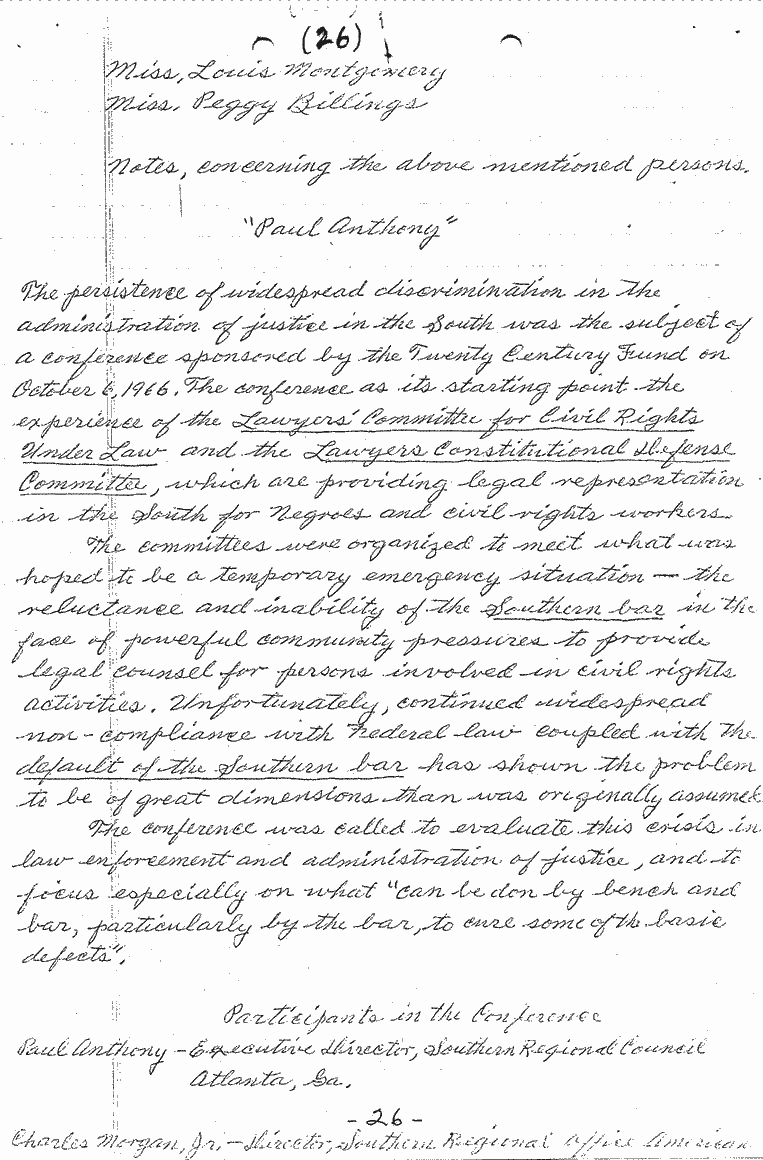 (26)
Miss, Louis Montgomery
Miss. Peggy Billings
Notes, concerning the above mentioned persons.
"Paul Anthony"
The persistence of widespread discrimination in the
administration of justice in the South was the subject of
a conference sponsored by the Twenty Century Fund on
October 6, 1966. The conference as its starting point the
experience of the Lawyers' Committee for Civil Rights
Under Law and the Lawyers Constitutional Defense
Committee, which are providing legal representation
in the South for Negroes and civil rights workers.
The committees were organized to meet what was
hoped to be a temporary emergency situation — the
reluctance and inability of the Southern bar in the
face of powerful community pressures to provide
legal counsel for persons involved in civil rights
activities. Unfortunately, continued widespread
non-compliance with Federal law coupled with the
default of the Southern bar has shown the problem
to be of great dimensions than was originally assumed
The conference was called to evaluate this crisis in
law enforcement and administration of justice, and to
focus especially on what "can be don by bench and
bar, particularly by the bar, to cure some of the basic
defects".
Participants in the Conference
Paul Anthony - Executive Director, Southern Regional Council
Atlanta, Ga.
- 26 -
Charles Morgan, Jr. - Director, Southern Regional Office American